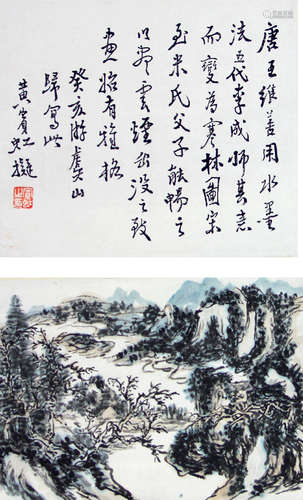 唐王維善用水墨
法五代李成師其意
而變為寒林圖宋
至米氏父子能暢之
以盡雲煙出沒之致
畫始有雅格
癸亥游虞山
歸寫此
黃賓虹擬